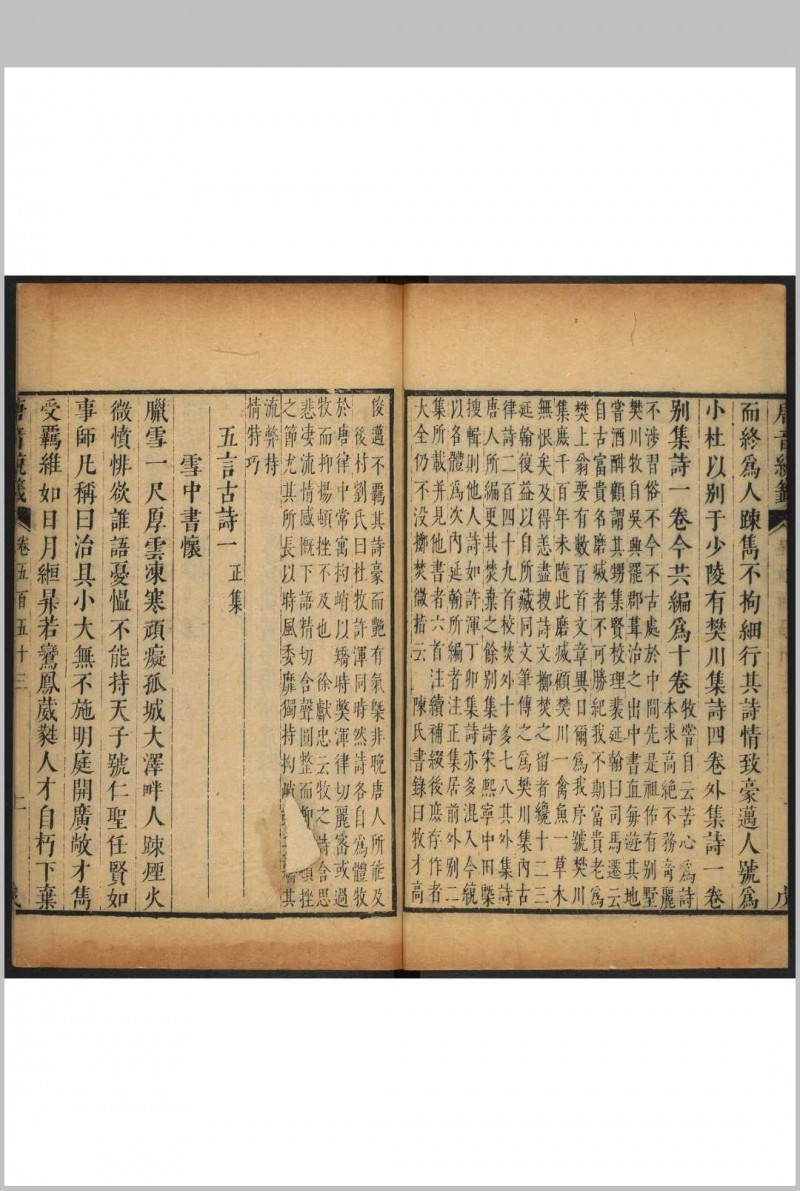 而終爲人踈雋不拘細行其詩情致豪邁人號爲
小杜以别于少陵有樊川集詩四卷外集詩一卷
别集詩一卷今共編爲十卷
牧嘗自云苦心爲詩
本求高絶不務竒麗
不涉習俗不今不古處於中間先是祖佑有别墅
樊川牧自吳興罷郡葺治之出中書直每遊其地
嘗酒酣顧謂其甥集賢校理裴延翰曰司馬遷云
自古富貴名磨滅者不可勝紀我不期富貴老爲
樊上翁要有數百首文章異日爾爲我序號樊川
集庶千百年未隨此磨滅顧樊川一禽魚一草木
無恨矣及得恙盡搜詩文擲焚之留者纔十二三
延翰復益以自所藏同文筆傳之爲樊川集内古
律詩二百四十九首校焚外十多七八其外集詩
唐人所編更其焚棄之餘别集詩宋熙寧中田槩
搜輯則他人詩如許渾丁卯集詩亦多混入今統
以各體爲次内延翰所編者注正集居前外别二
集所載并見他書者六首注續補綴後庶存作者
大全仍不没擲焚微指云 陳氏書錄曰牧才高
俊邁不羈其詩豪而艷有氣槩非晚唐人所能及
後村劉氏曰杜牧許渾同時然詩各自爲體牧
於唐律中常寓拗峭以矯時弊渾律切麗宻或過
牧而抑揚頓挫不及也 徐獻忠云牧之詩含思
悲淒流情感慨下語精切含聲圓整而抑 頓挫
之節尤其所長以時風委靡獨持拗峭 其
流弊持
情特巧
五言古詩一 正集
雪中書懷
臘雪一尺厚雲凍寒頑癡孤城大澤畔人踈煙火
微憤悱欲誰語憂慍不能持天子號仁聖任賢如
事師凡稱曰治具小大無不施明庭開廣敞才雋
受羈維如日月縆昇若鸞鳳葳蕤人才自朽下棄
唐音統籤 卷五百五十三 二 戊